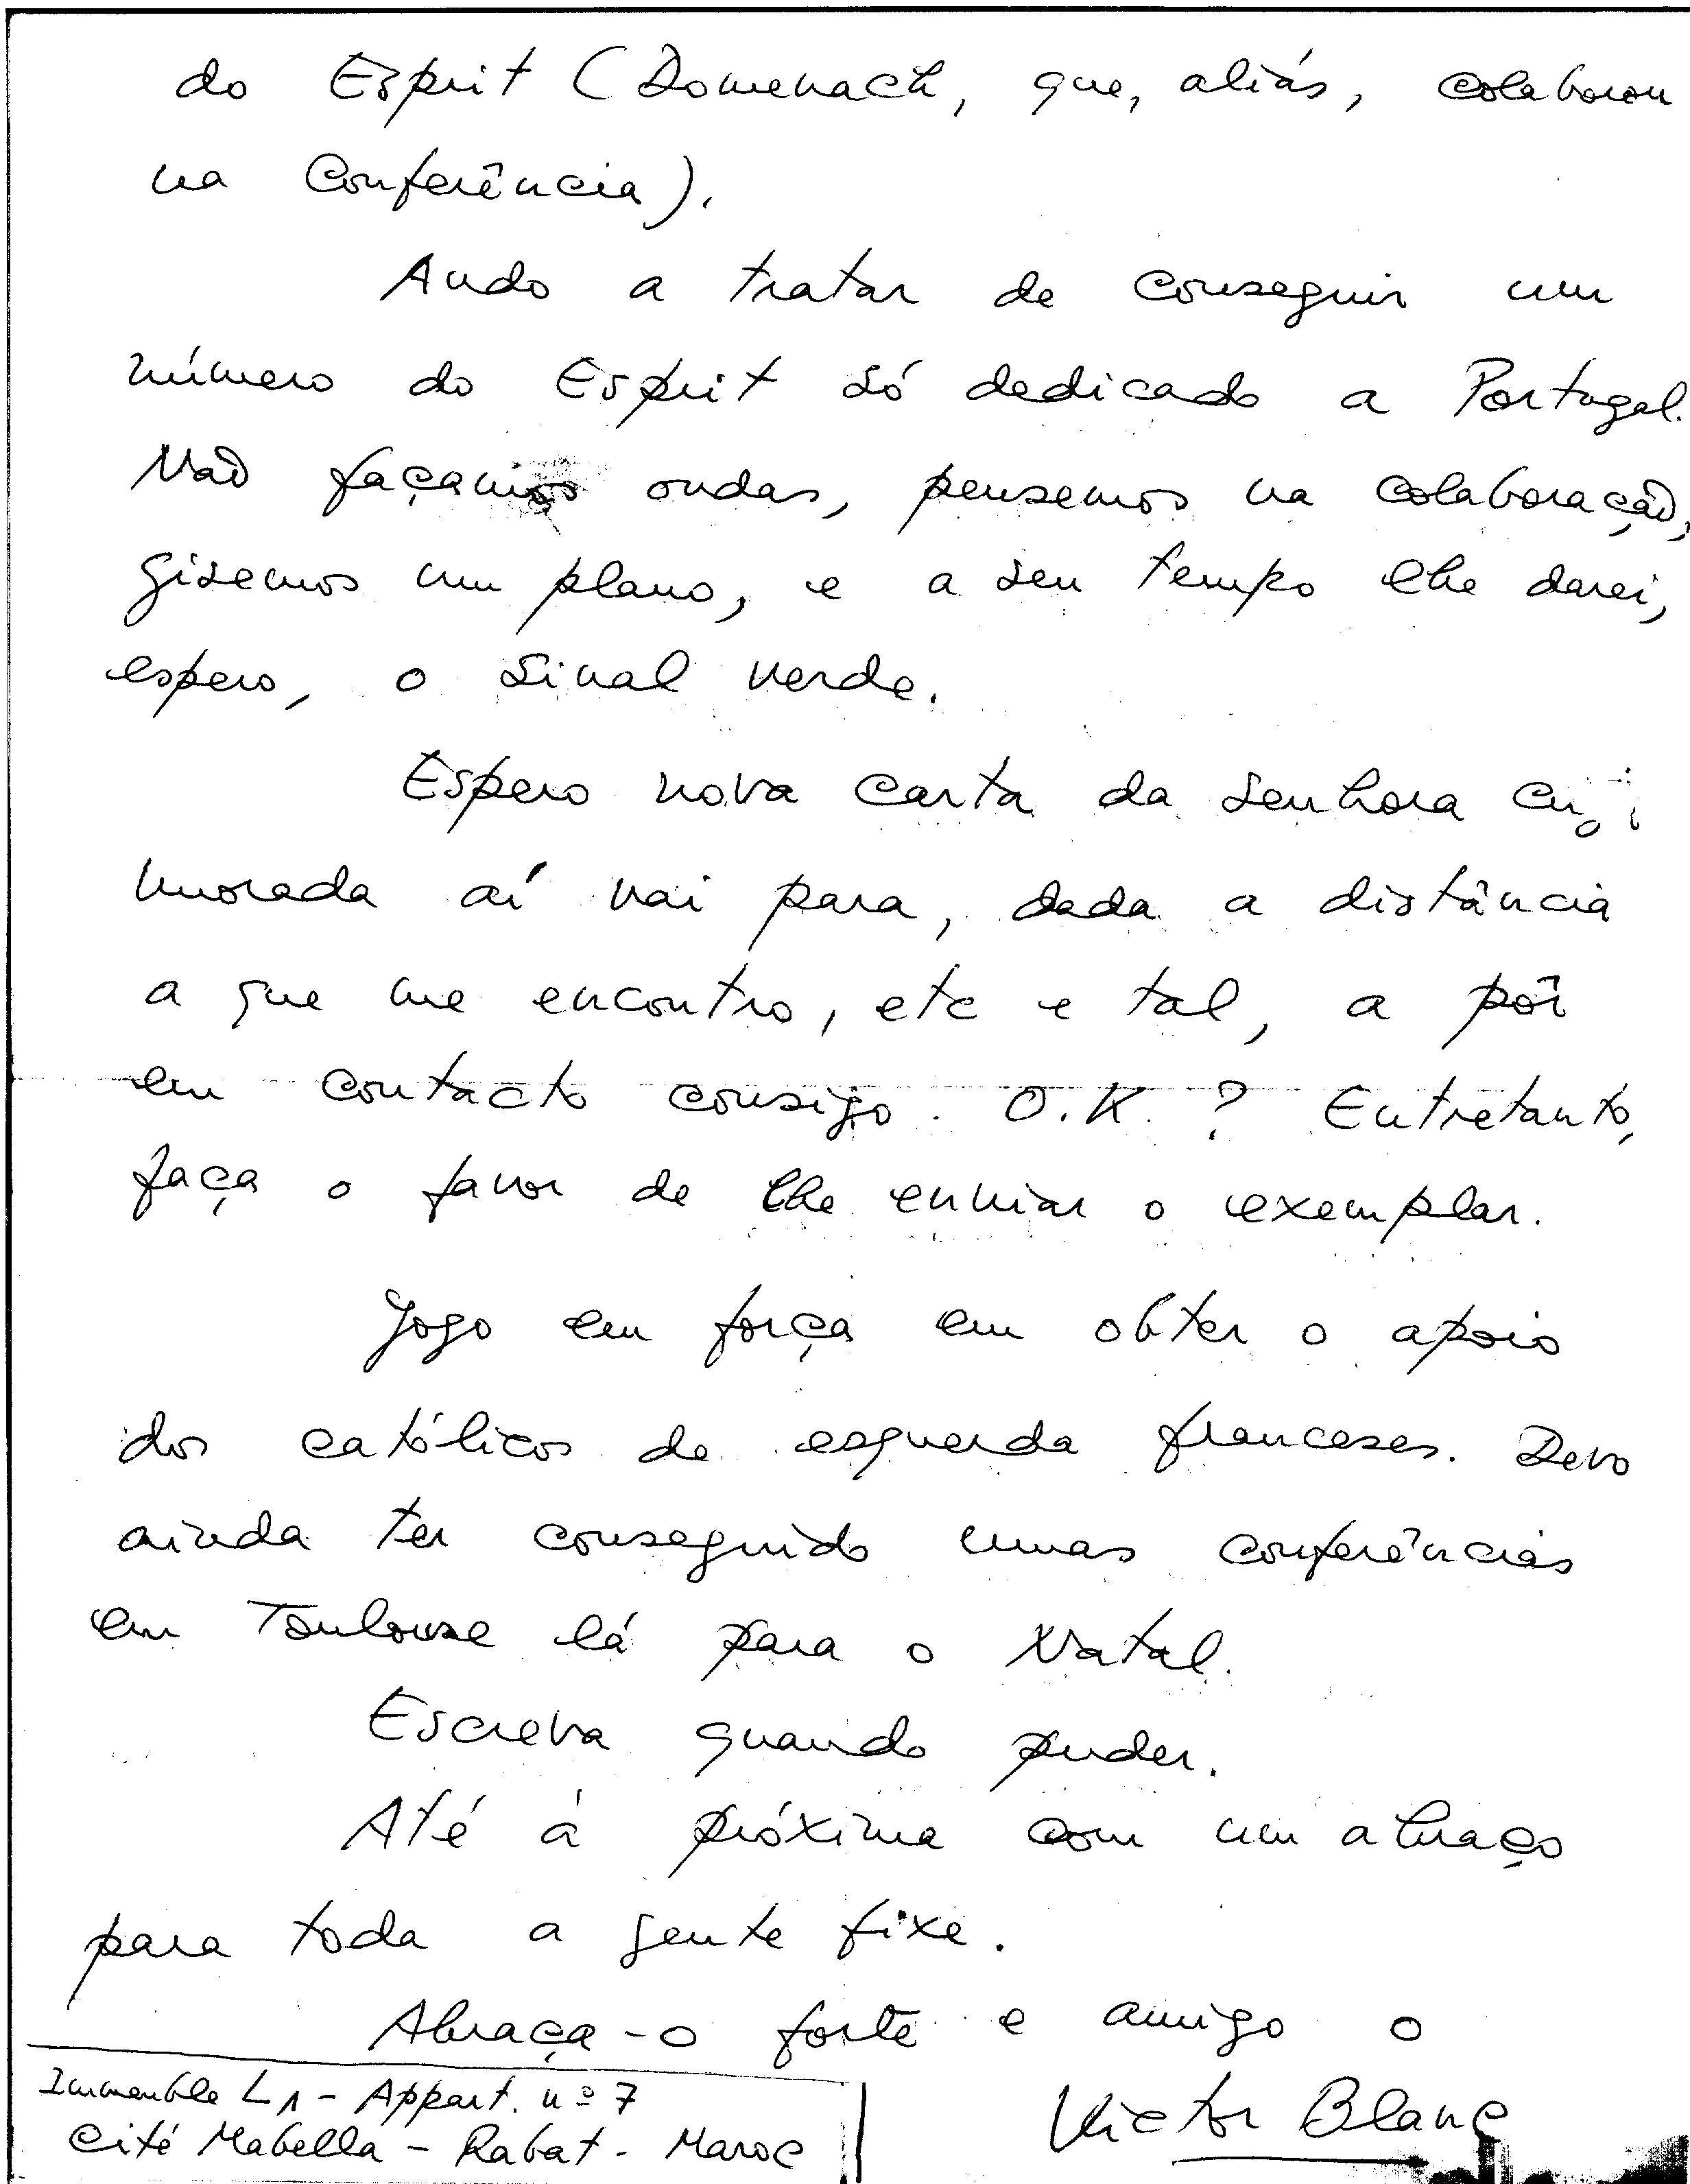 do Esprit (Domenach, que, aliás, colaborou
na Conferência).
Ando a tratar de conseguir um
número do Esprit só dedicado a Portugal.
Não façamos ondas, pensemos na colaboração,
gizemos um plano, e a seu tempo lhe darei,
espero, o sinal verde.
Espero nova carta da senhora cuja
morada aí vai para, dada a distância
a que me encontro, etc e tal, a pôr
em contacto consigo. O.K.? Entretanto,
faça o favor de lhe enviar o exemplar.
Jogo em força em obter o apoio
dos católicos de esquerda franceses. Devo
ainda ter conseguido umas conferências
em Toulouse lá para o Natal.
Escreva quando puder.
Até à próxima com um abraço
para toda a gente fixe.
Abraça-o forte e amigo o
Victor Blanc
Immeuble L1 - Appart. nº 7
Cité Mabella - Rabat - Maroc